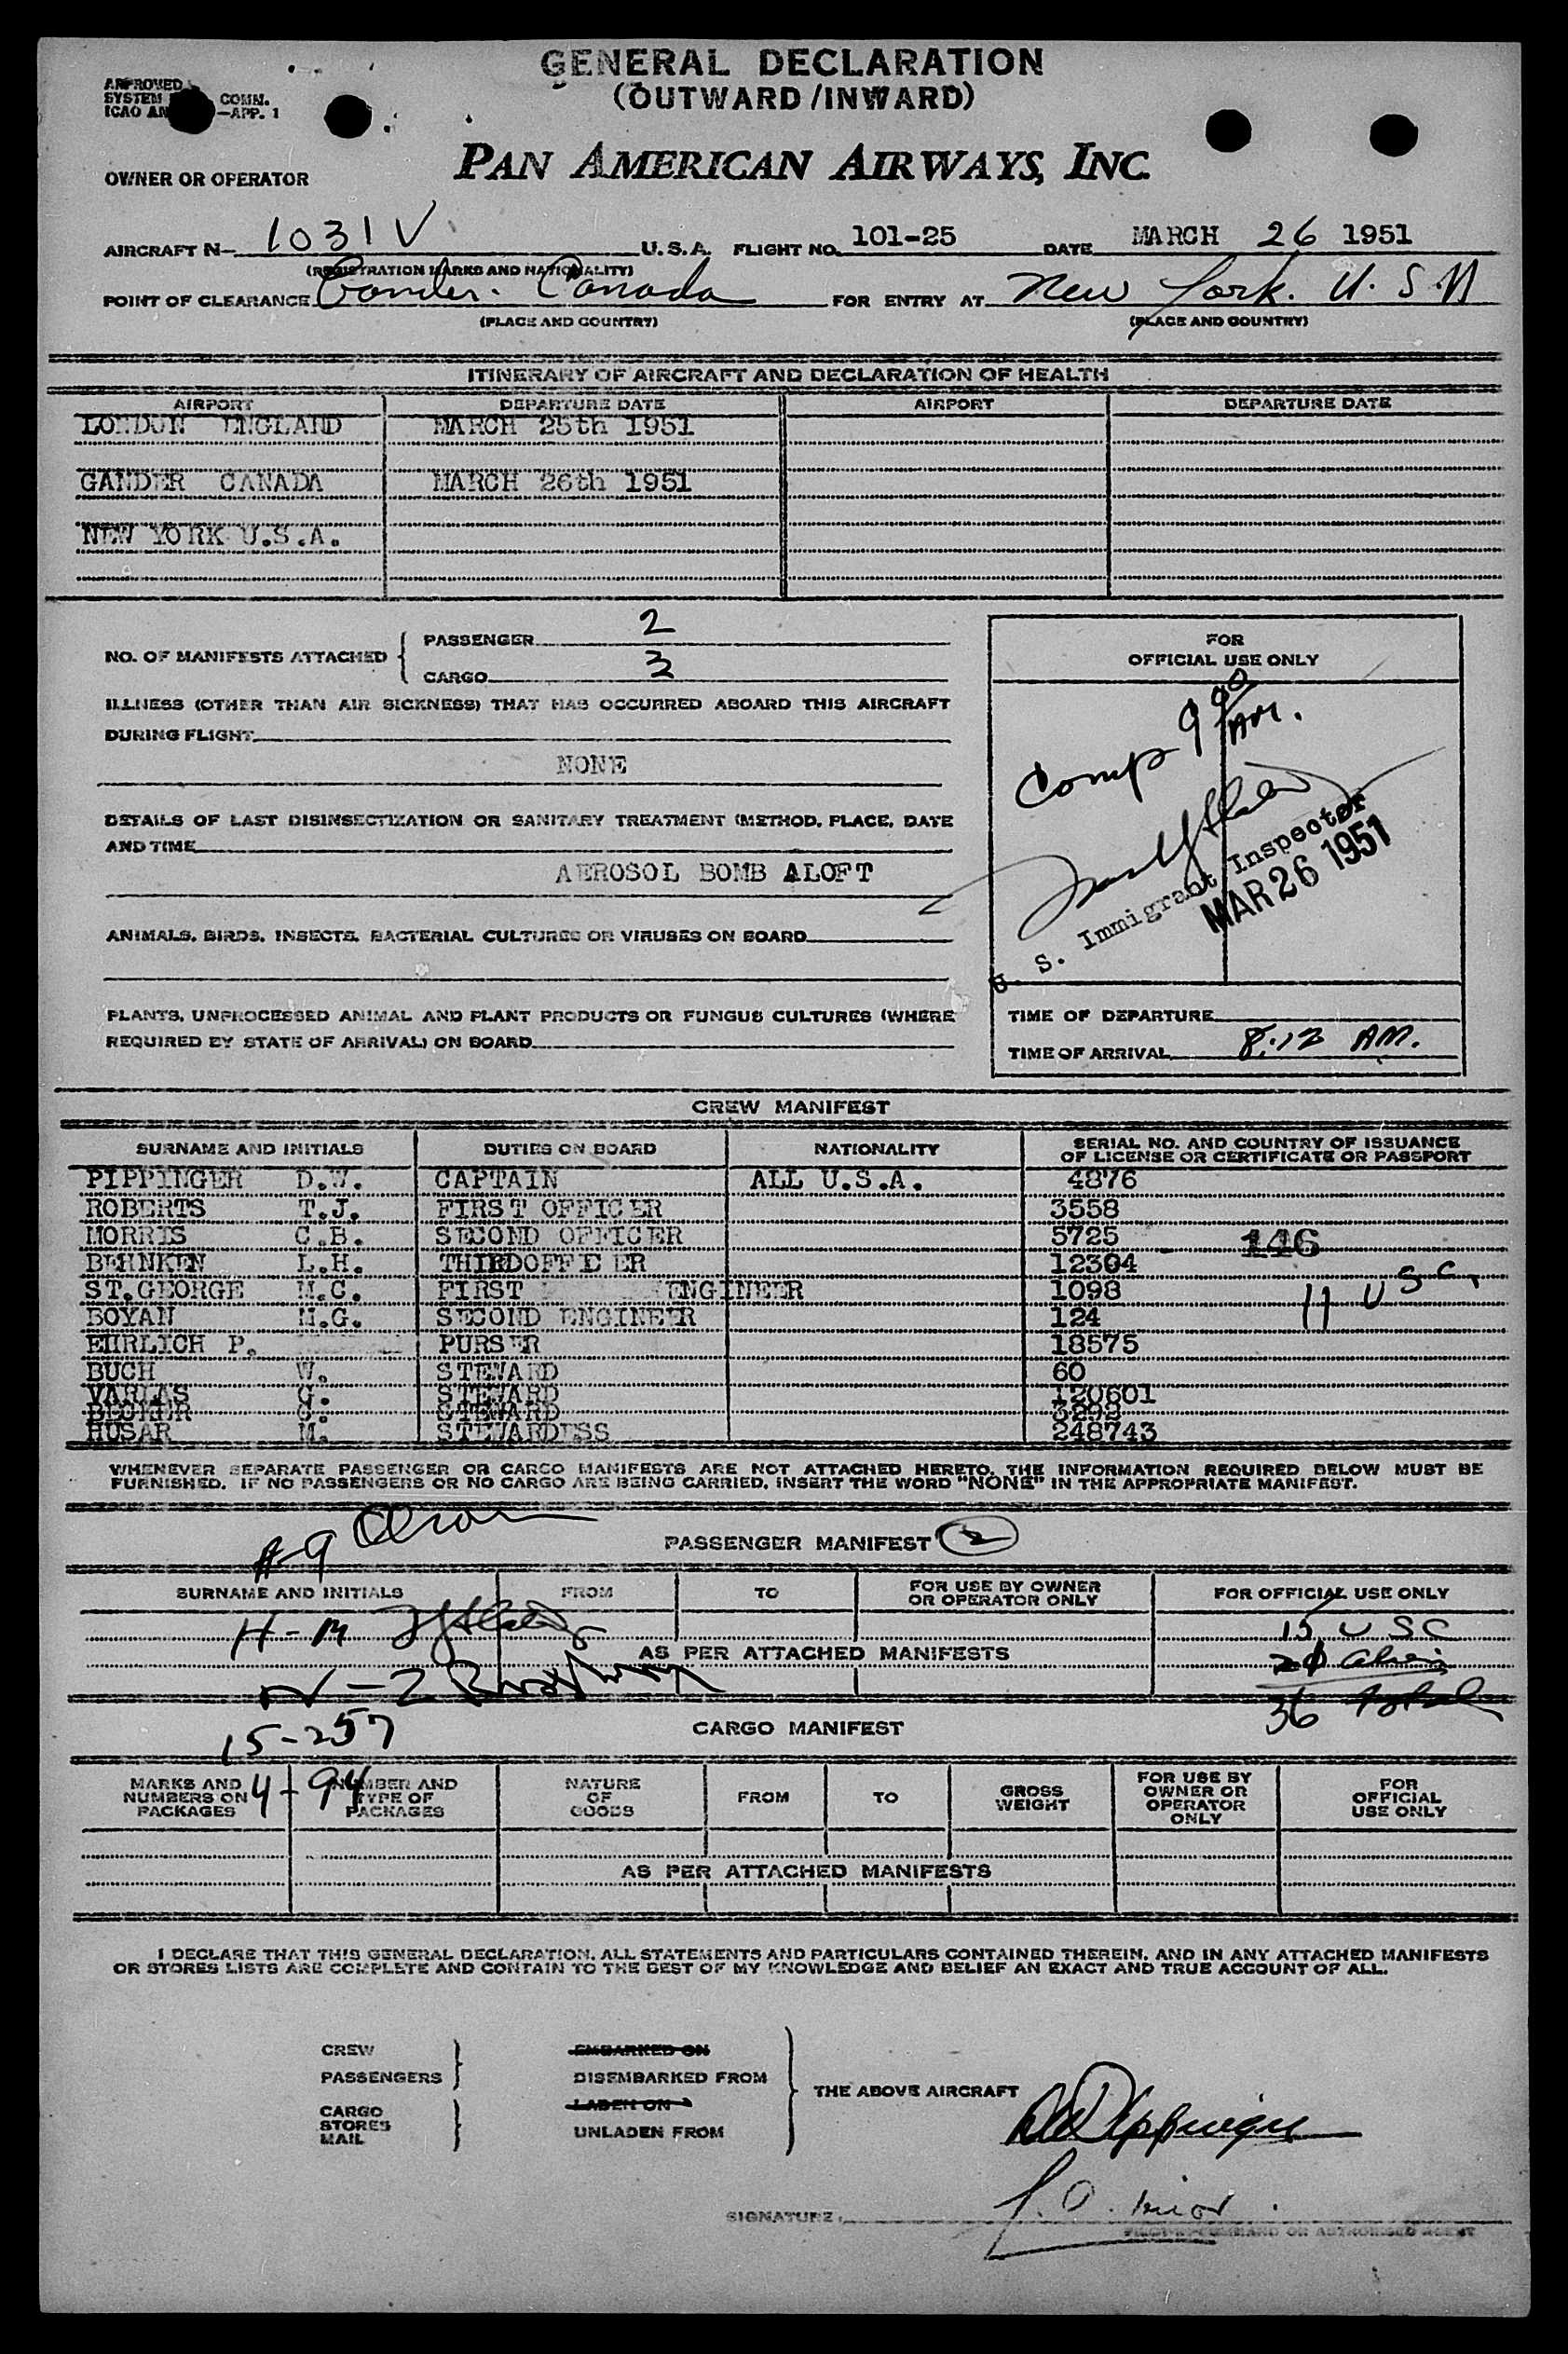 GENERAL DECLARATION
(OUTWARD/INWARD)
APPROVED
SYSTEM COMM.
ICAO AN —APP. 1
OWNER OR OPERATOR
PAN AMERICAN AIRWAYS, INC.
AIRCRAFT N— 1031V U.S.A. FLIGHT NO. 101-25 DATE MARCH 26 1951
(REGISTRATION MARKS AND NATIONALITY)
POINT OF CLEARANCE Gander. Canada FOR ENTRY AT New York. U.S.A
(PLACE AND COUNTRY) (PLACE AND COUNTRY)
ITINERARY OF AIRCRAFT AND DECLARATION OF HEALTH
AIRPORT DEPARTURE DATE AIRPORT DEPARTURE DATE
LONDON ENGLAND MARCH 25th 1951
GANDER CANADA MARCH 26th 1951
NEW YORK U.S.A.
NO. OF MANIFESTS ATTACHED { PASSENGER 2
CARGO 3
ILLNESS (OTHER THAN AIR SICKNESS) THAT HAS OCCURRED ABOARD THIS AIRCRAFT
DURING FLIGHT
NONE
DETAILS OF LAST DISINSECTIZATION OR SANITARY TREATMENT (METHOD, PLACE, DATE
AND TIME
AEROSOL BOMB ALOFT
ANIMALS, BIRDS, INSECTS, BACTERIAL CULTURES OR VIRUSES ON BOARD
PLANTS, UNPROCESSED ANIMAL AND PLANT PRODUCTS OR FUNGUS CULTURES (WHERE
REQUIRED BY STATE OF ARRIVAL) ON BOARD
FOR
OFFICIAL USE ONLY
Comp 9 00 AM.
U. S. Immigrant Inspector
MAR 26 1951
TIME OF DEPARTURE
TIME OF ARRIVAL 8:12 AM.
CREW MANIFEST
SURNAME AND INITIALS DUTIES ON BOARD NATIONALITY SERIAL NO. AND COUNTRY OF ISSUANCE
OF LICENSE OR CERTIFICATE OR PASSPORT
PIPPINGER D.W. CAPTAIN ALL U.S.A. 4876
ROBERTS T.J. FIRST OFFICER 3558
MORRIS C.B. SECOND OFFICER 5725 146
BEHNKEN L.H. THIRDOFFICER 12304
ST.GEORGE M.C. FIRST ENGINEER 1098 11 USC.
BOYAN M.G. SECOND ENGINEER 124
EHRLICH P. PURSER 18575
BUCH W. STEWARD 60
VARLAS G. STEWARD 120601
BECKER G. STEWARD 3292
HUSAR M. STEWARDESS 248743
WHENEVER SEPARATE PASSENGER OR CARGO MANIFESTS ARE NOT ATTACHED HERETO, THE INFORMATION REQUIRED BELOW MUST BE
FURNISHED. IF NO PASSENGERS OR NO CARGO ARE BEING CARRIED, INSERT THE WORD "NONE" IN THE APPROPRIATE MANIFEST.
A-G
PASSENGER MANIFEST 2
SURNAME AND INITIALS FROM TO FOR USE BY OWNER
OR OPERATOR ONLY FOR OFFICIAL USE ONLY
H-M 15 USC
AS PER ATTACHED MANIFESTS
21 Aliens
N-Z
36 total
15-257
CARGO MANIFEST
4-94
MARKS AND
NUMBERS ON
PACKAGES NUMBER AND
TYPE OF
PACKAGES NATURE
OF
GOODS FROM TO GROSS
WEIGHT FOR USE BY
OWNER OR
OPERATOR
ONLY FOR
OFFICIAL
USE ONLY
AS PER ATTACHED MANIFESTS
I DECLARE THAT THIS GENERAL DECLARATION, ALL STATEMENTS AND PARTICULARS CONTAINED THEREIN, AND IN ANY ATTACHED MANIFESTS
OR STORES LISTS ARE COMPLETE AND CONTAIN TO THE BEST OF MY KNOWLEDGE AND BELIEF AN EXACT AND TRUE ACCOUNT OF ALL.
CREW EMBARKED ON
PASSENGERS DISEMBARKED FROM
THE ABOVE AIRCRAFT
CARGO LADEN ON
STORES
MAIL UNLADEN FROM
DW Pippinger
SIGNATURE
PILOT-IN-COMMAND OR AUTHORISED AGENT